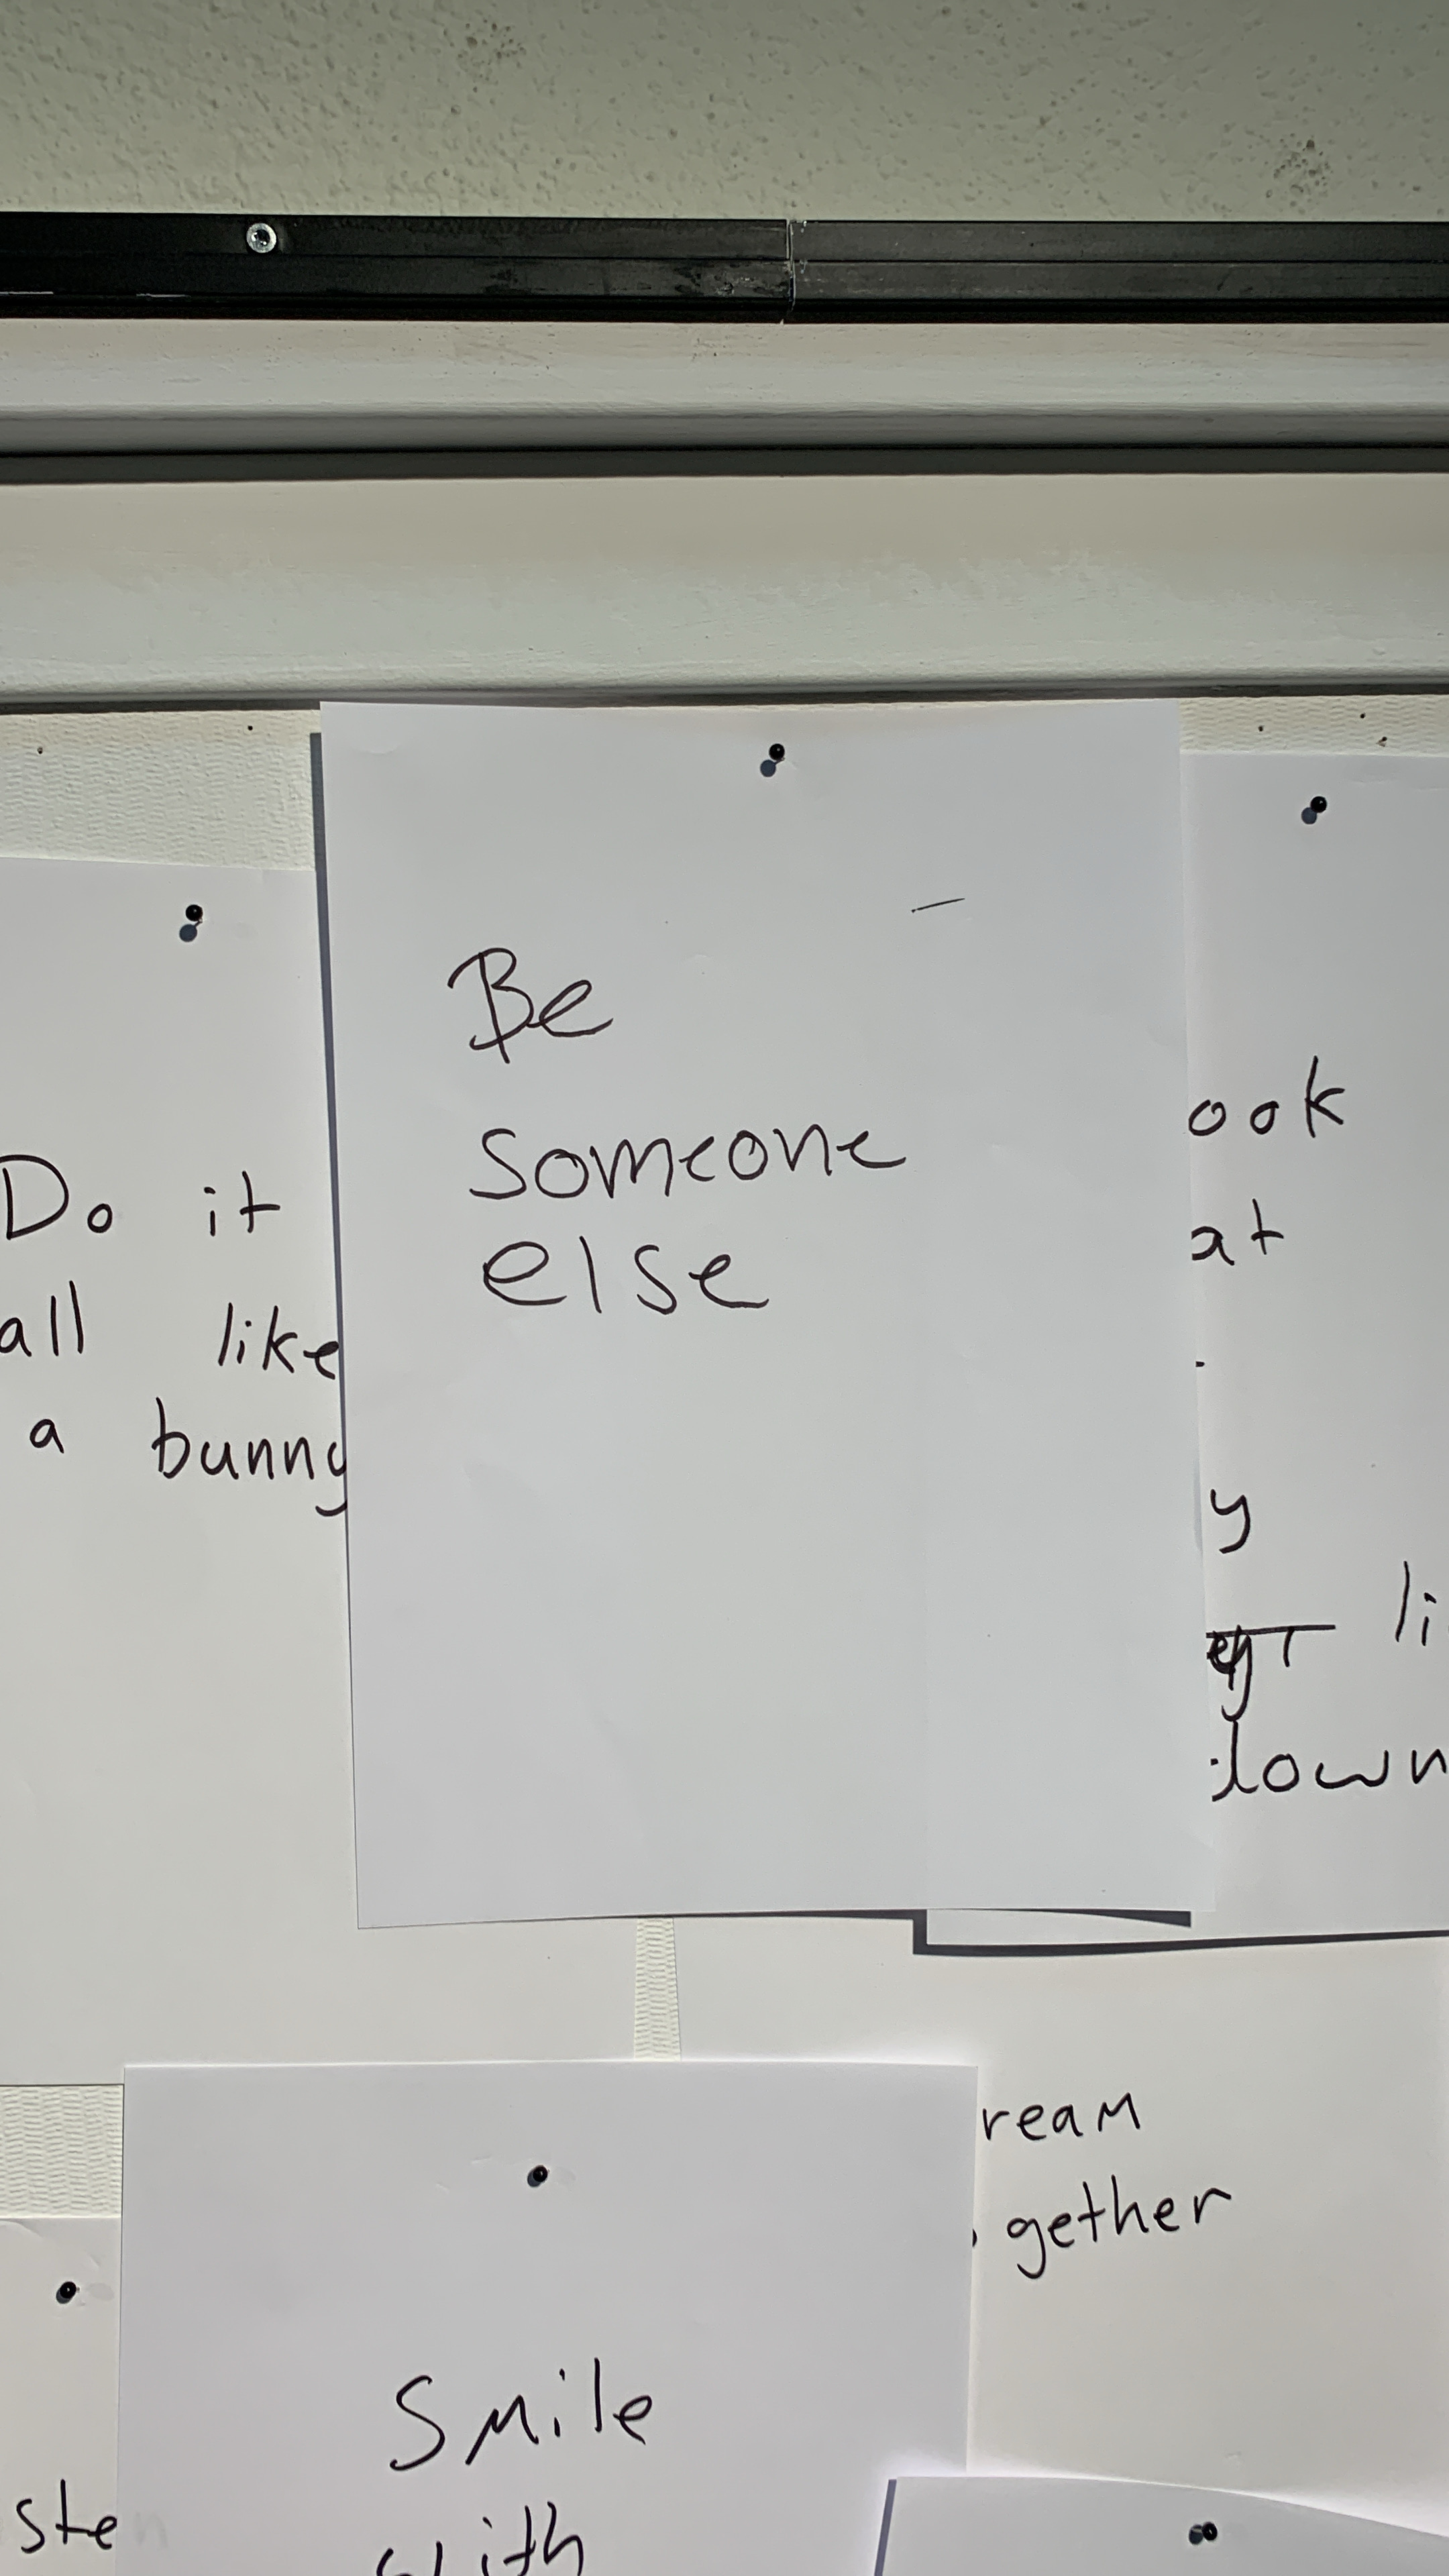 Be
someone
else
Do it
all like
a bunny
ook
at
y
li
lown
ream
gether
Smile
with
sten